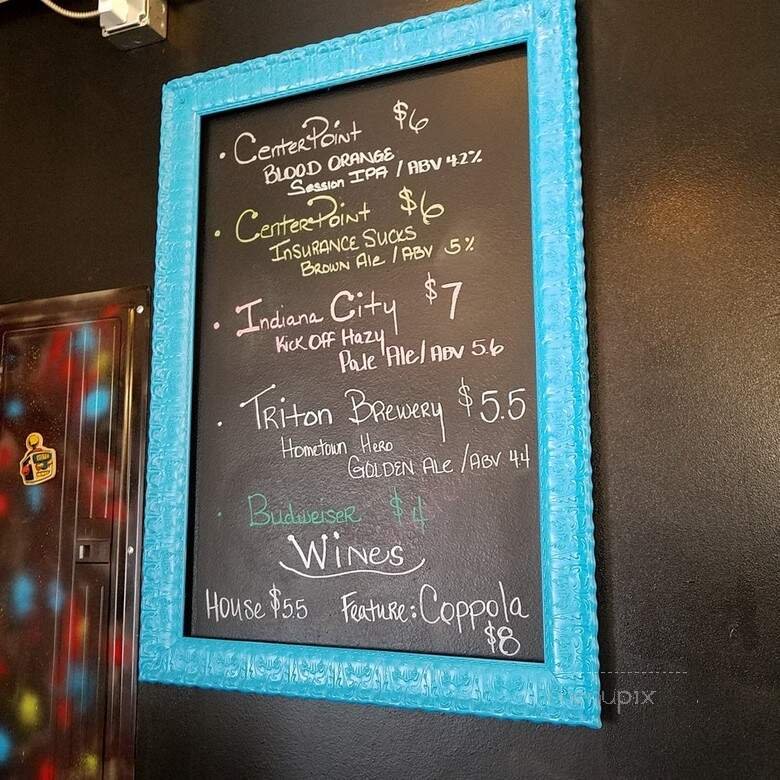 • CenterPoint $6
BLOOD ORANGE
Session IPA / ABV 4.2%
• CenterPoint $6
INSURANCE SUCKS
BROWN Ale / ABV 5%
• Indiana City $7
Kick Off Hazy
Pale Ale / ABV 5.6
• TRiton BREWERY $5.5
Hometown Hero
GOLDEN Ale / ABV 4.4
• Budweiser $4
WINES
House $5.5 Feature: Coppola
$8